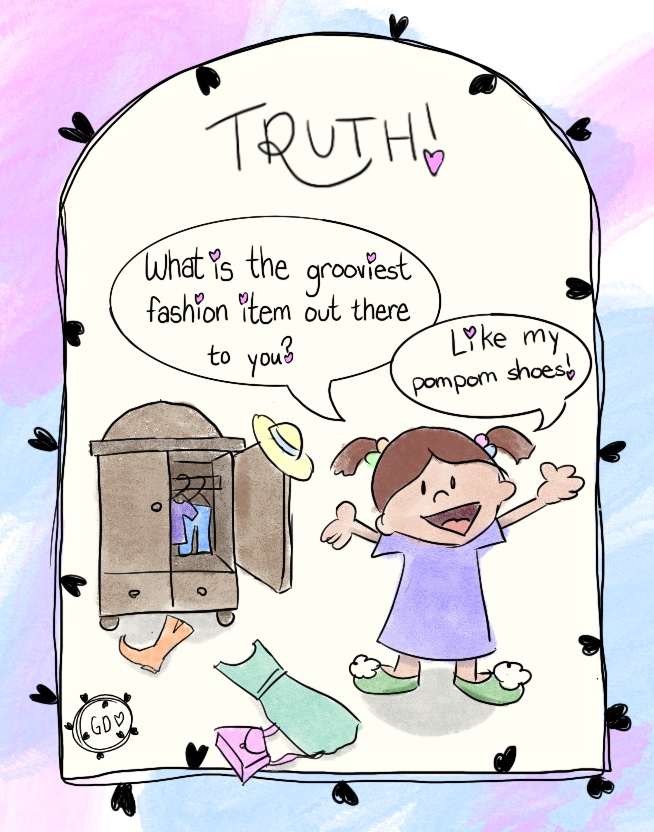 TRUTH!
What is the grooviest
fashion item out there
to you?
Like my
pompom shoes!
GD♡